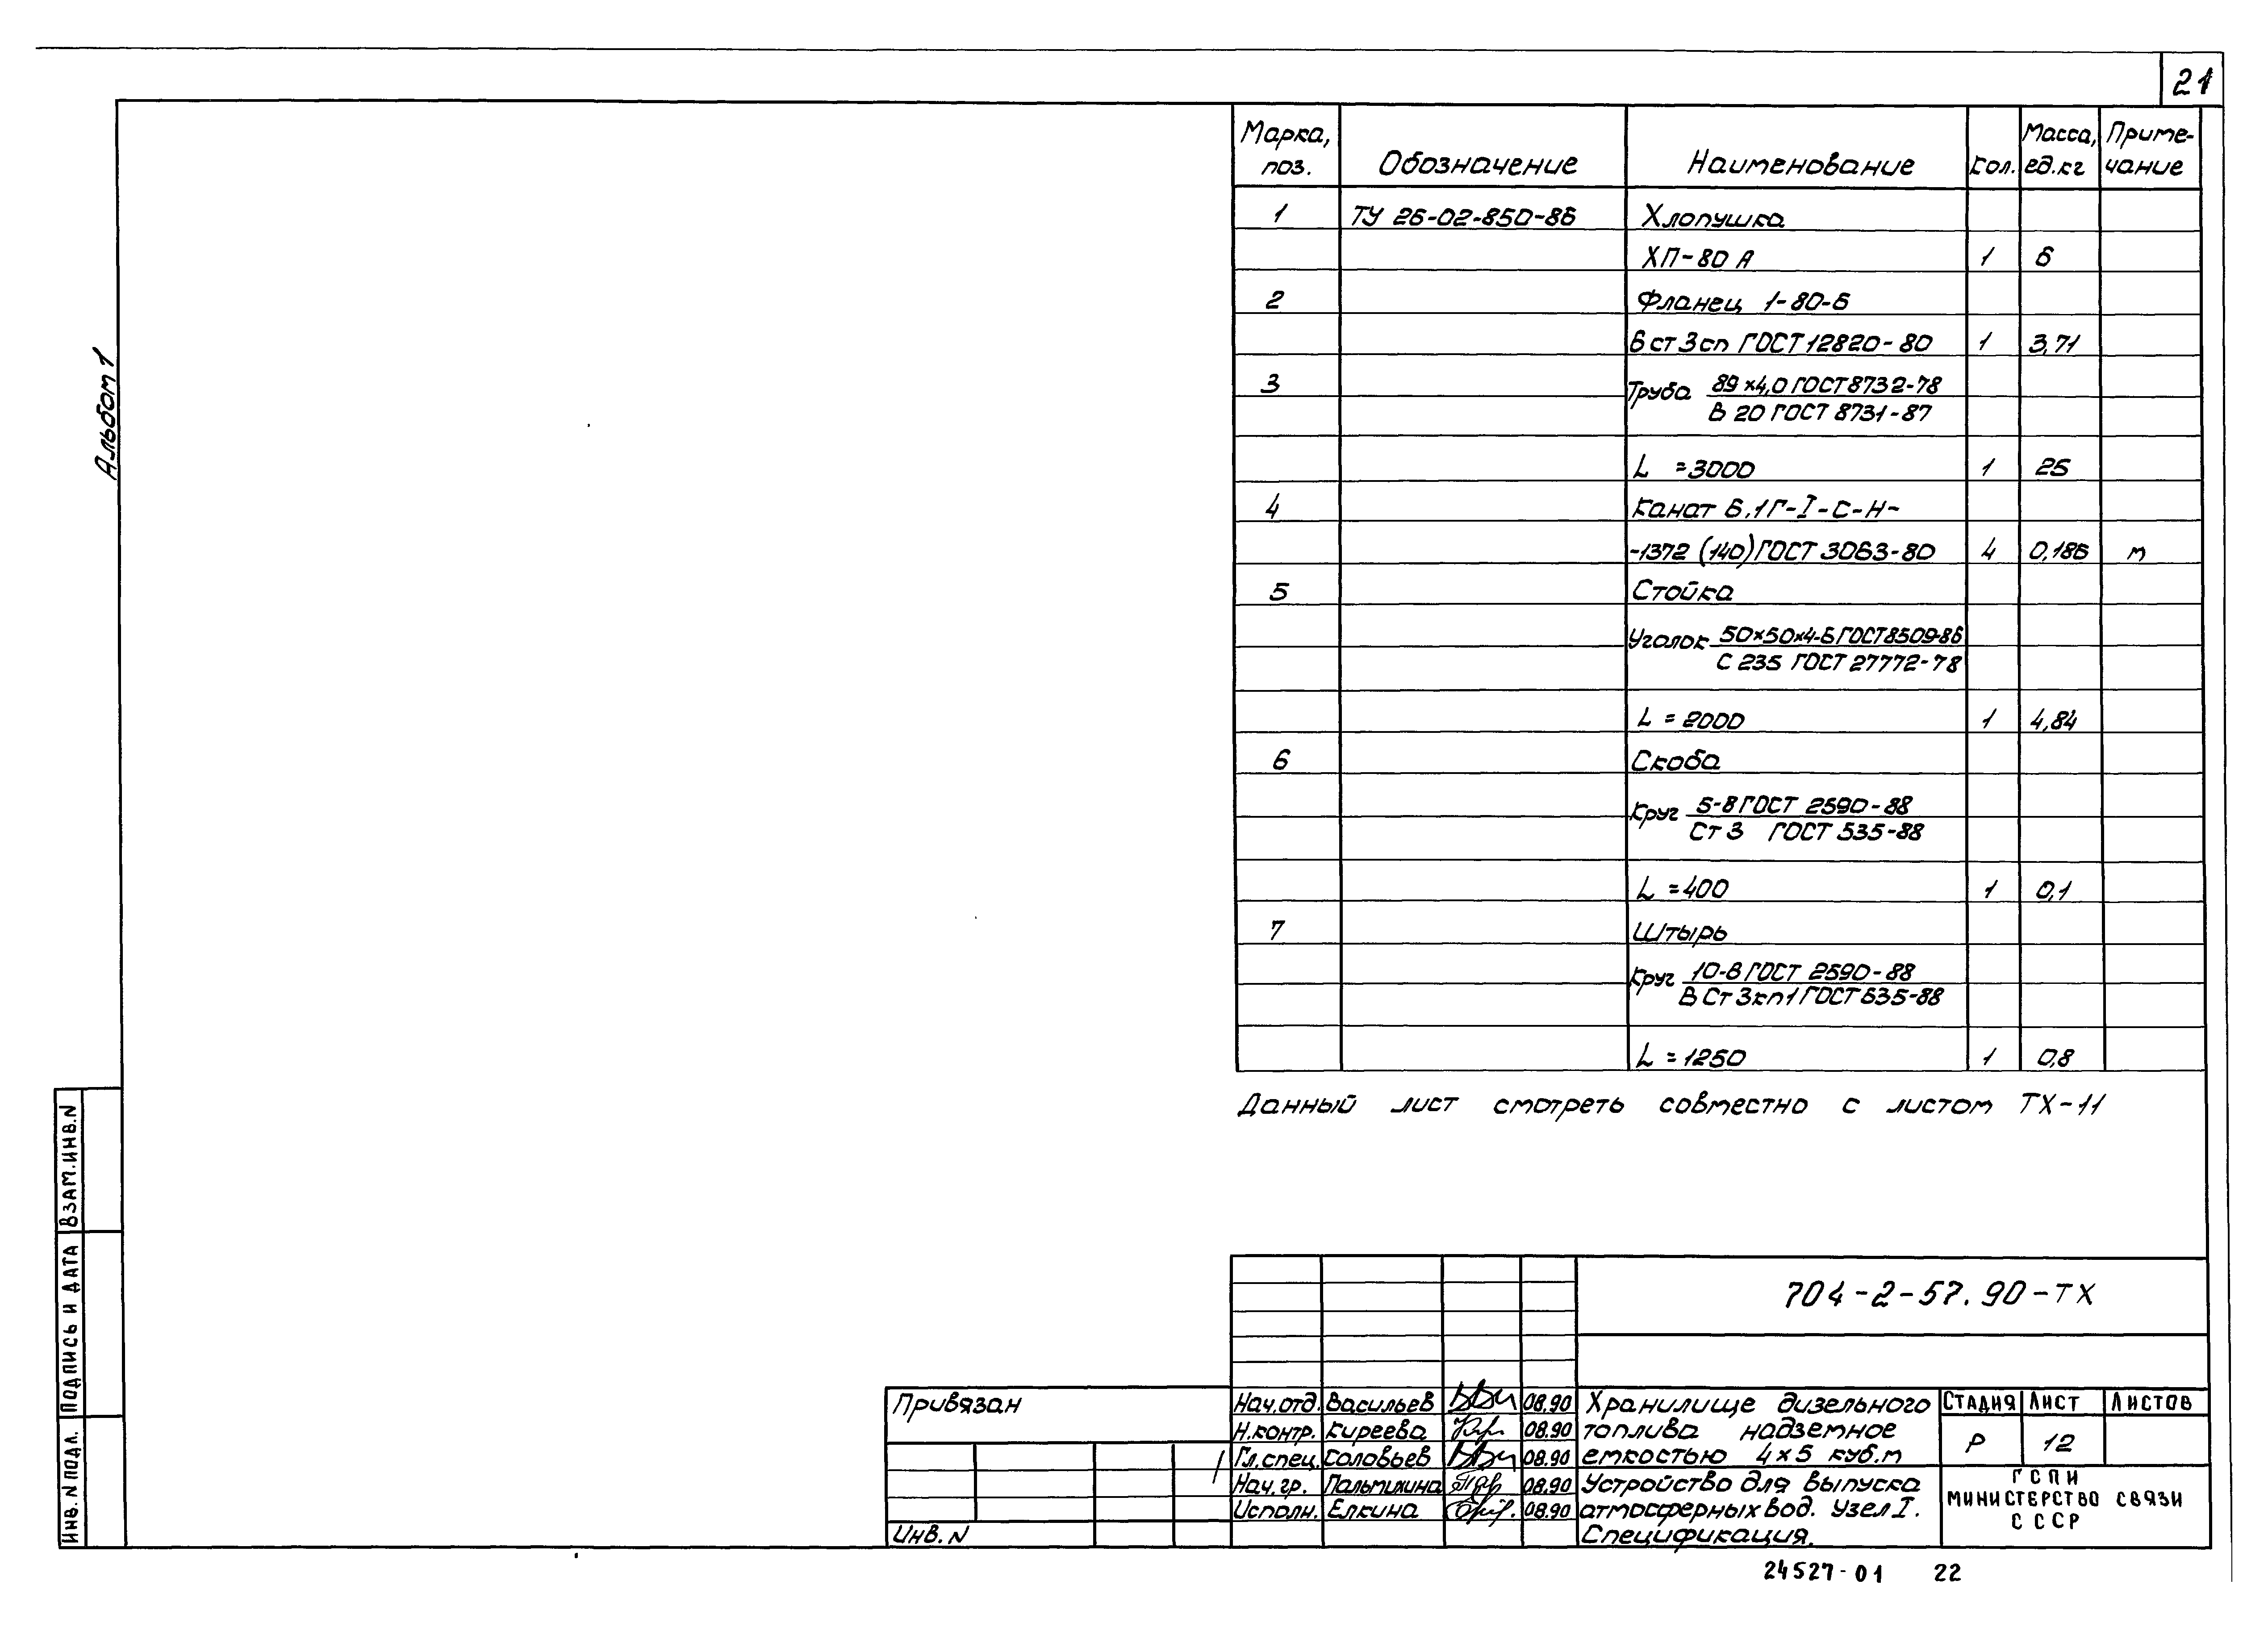 21
Альбом 1
Марка, поз. Обозначение Наименование Кол. Масса, ед.кг Приме-чание
1 ТУ 26-02-850-86 Хлопушка
ХП-80 А 1 6
2 Фланец 1-80-6
6 ст 3 сп ГОСТ 12820-80 1 3,71
3 Труба 89×4,0 ГОСТ 8732-78
В 20 ГОСТ 8731-87
L =3000 1 25
4 Канат 6.1 Г-I-С-Н-
-1372 (140) ГОСТ 3063-80 4 0,186 м
5 Стойка
Уголок 50×50×4-Б ГОСТ 8509-86
С 235 ГОСТ 27772-78
L = 2000 1 4,84
6 Скоба
Круг 5-В ГОСТ 2590-88
Ст 3 ГОСТ 535-88
L =400 1 0,1
7 Штырь
Круг 10-В ГОСТ 2590-88
В Ст 3кп1 ГОСТ 535-88
L =1250 1 0,8
Данный лист смотреть совместно с листом ТХ-11
ВЗАМ.ИНВ.N
ПОДПИСЬ И ДАТА
ИНВ. N ПОДЛ.
704-2-57.90-ТХ
Привязан
Инв. N
Нач.отд. Васильев 08.90
Н.контр. Киреева 08.90
Гл.спец. Соловьев 08.90
Нач.гр. Пальмихина 08.90
Исполн. Елкина 08.90
Хранилище дизельного
топлива надземное
емкостью 4×5 куб.м
Устройство для выпуска
атмосферных вод. Узел I.
Спецификация.
СТАДИЯ ЛИСТ ЛИСТОВ
Р 12
ГСПИ
МИНИСТЕРСТВО СВЯЗИ
СССР
24527-01 22